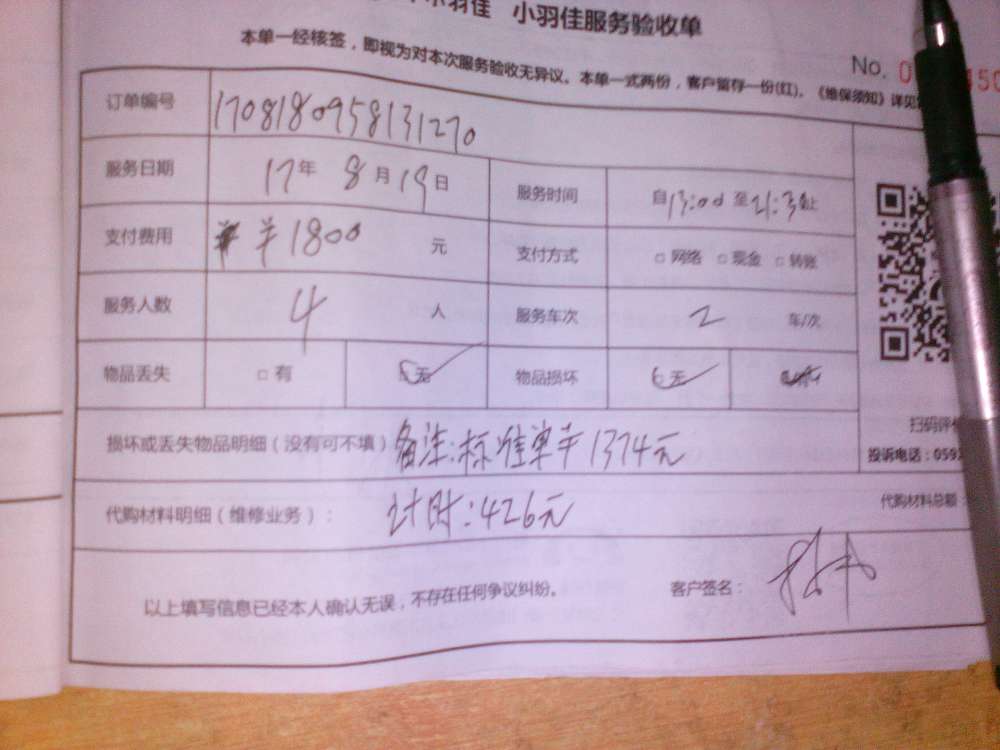 小羽佳 小羽佳服务验收单
本单一经核签，即视为对本次服务验收无异议。本单一式两份，客户留存一份(红)。《维保须知》详见
No. 0 459
订单编号 1708180958131270
服务日期 17年 8月19日 服务时间 自13:00至21:30止
支付费用 ￥1800 元 支付方式 □网络 □现金 □转账
服务人数 4 人 服务车次 2 车/次
物品丢失 □有 □无 物品损坏 □无
损坏或丢失物品明细（没有可不填） 备注:标准单￥1374元
扫码评价
投诉电话：059
代购材料明细（维修业务）： 计时:426元
代购材料总额：
以上填写信息已经本人确认无误，不存在任何争议纠纷。 客户签名：